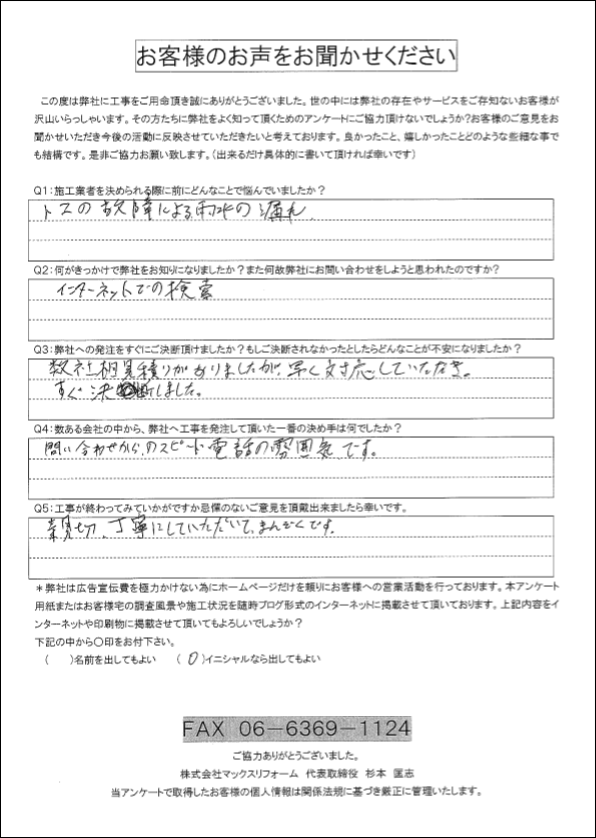 お客様のお声をお聞かせください
この度は弊社に工事をご用命頂き誠にありがとうございました。世の中には弊社の存在やサービスをご存知ないお客様が
沢山いらっしゃいます。その方たちに弊社をよく知って頂くためのアンケートにご協力頂けないでしょうか?お客様のご意見をお
聞かせいただき今後の活動に反映させていただきたいと考えております。良かったこと、嬉しかったことどのような些細な事で
も結構です。是非ご協力お願い致します。(出来るだけ具体的に書いて頂ければ幸いです)
Q1:施工業者を決められる際に前にどんなことで悩んでいましたか?
トユの故障による雨水の漏れ
Q2:何がきっかけで弊社をお知りになりましたか?また何故弊社にお問い合わせをしようと思われたのですか?
インターネットでの検索
Q3:弊社への発注をすぐにご決断頂けましたか?もしご決断されなかったとしたらどんなことが不安になりましたか?
数社相見積りがありましたが、早く対応していただき。
すぐ決断しました。
Q4:数ある会社の中から、弊社へ工事を発注して頂いた一番の決め手は何でしたか?
問い合わせから、のスピード電話の雰囲気です。
Q5:工事が終わってみていかがですか忌憚のないご意見を頂戴出来ましたら幸いです。
親切、丁寧にしていただいて、まんぞくです。
*弊社は広告宣伝費を極力かけない為にホームページだけを頼りにお客様への営業活動を行っております。本アンケート
用紙またはお客様宅の調査風景や施工状況を随時ブログ形式のインターネットに掲載させて頂いております。上記内容をイ
ンターネットや印刷物に掲載させて頂いてもよろしいでしょうか?
下記の中から〇印をお付下さい。
( )名前を出してもよい (〇)イニシャルなら出してもよい
FAX 06-6369-1124
ご協力ありがとうございました。
株式会社マックスリフォーム 代表取締役 杉本 匡志
当アンケートで取得したお客様の個人情報は関係法規に基づき厳正に管理いたします。